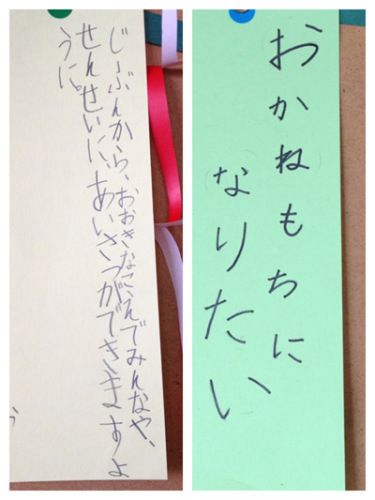 じぶんから、おおきなこえでみんなや、
せんせいに、あいさつができますよ
うに。
おかねもちに
なりたい